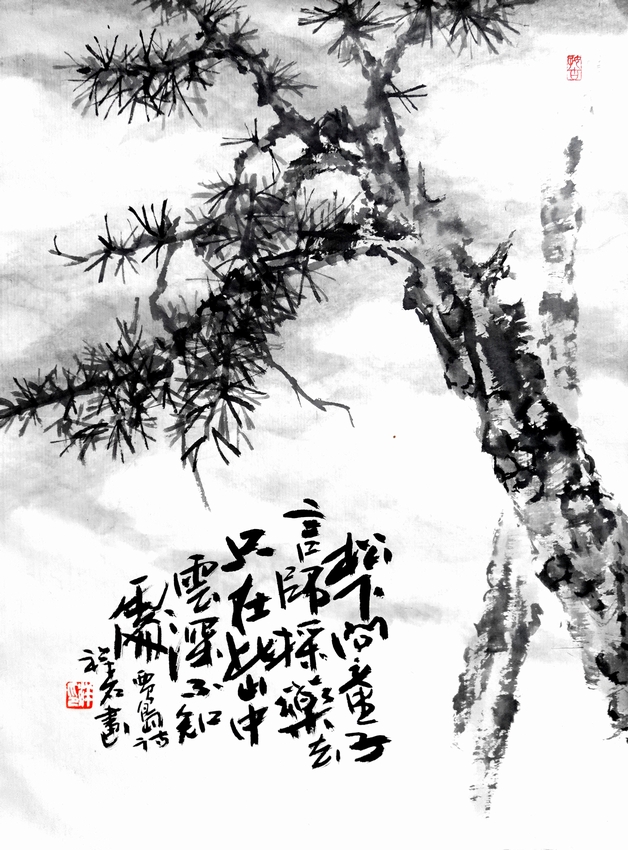 松下問童子
言師採藥去
只在此山中
雲深不知
處 賈島詩
祥 畫